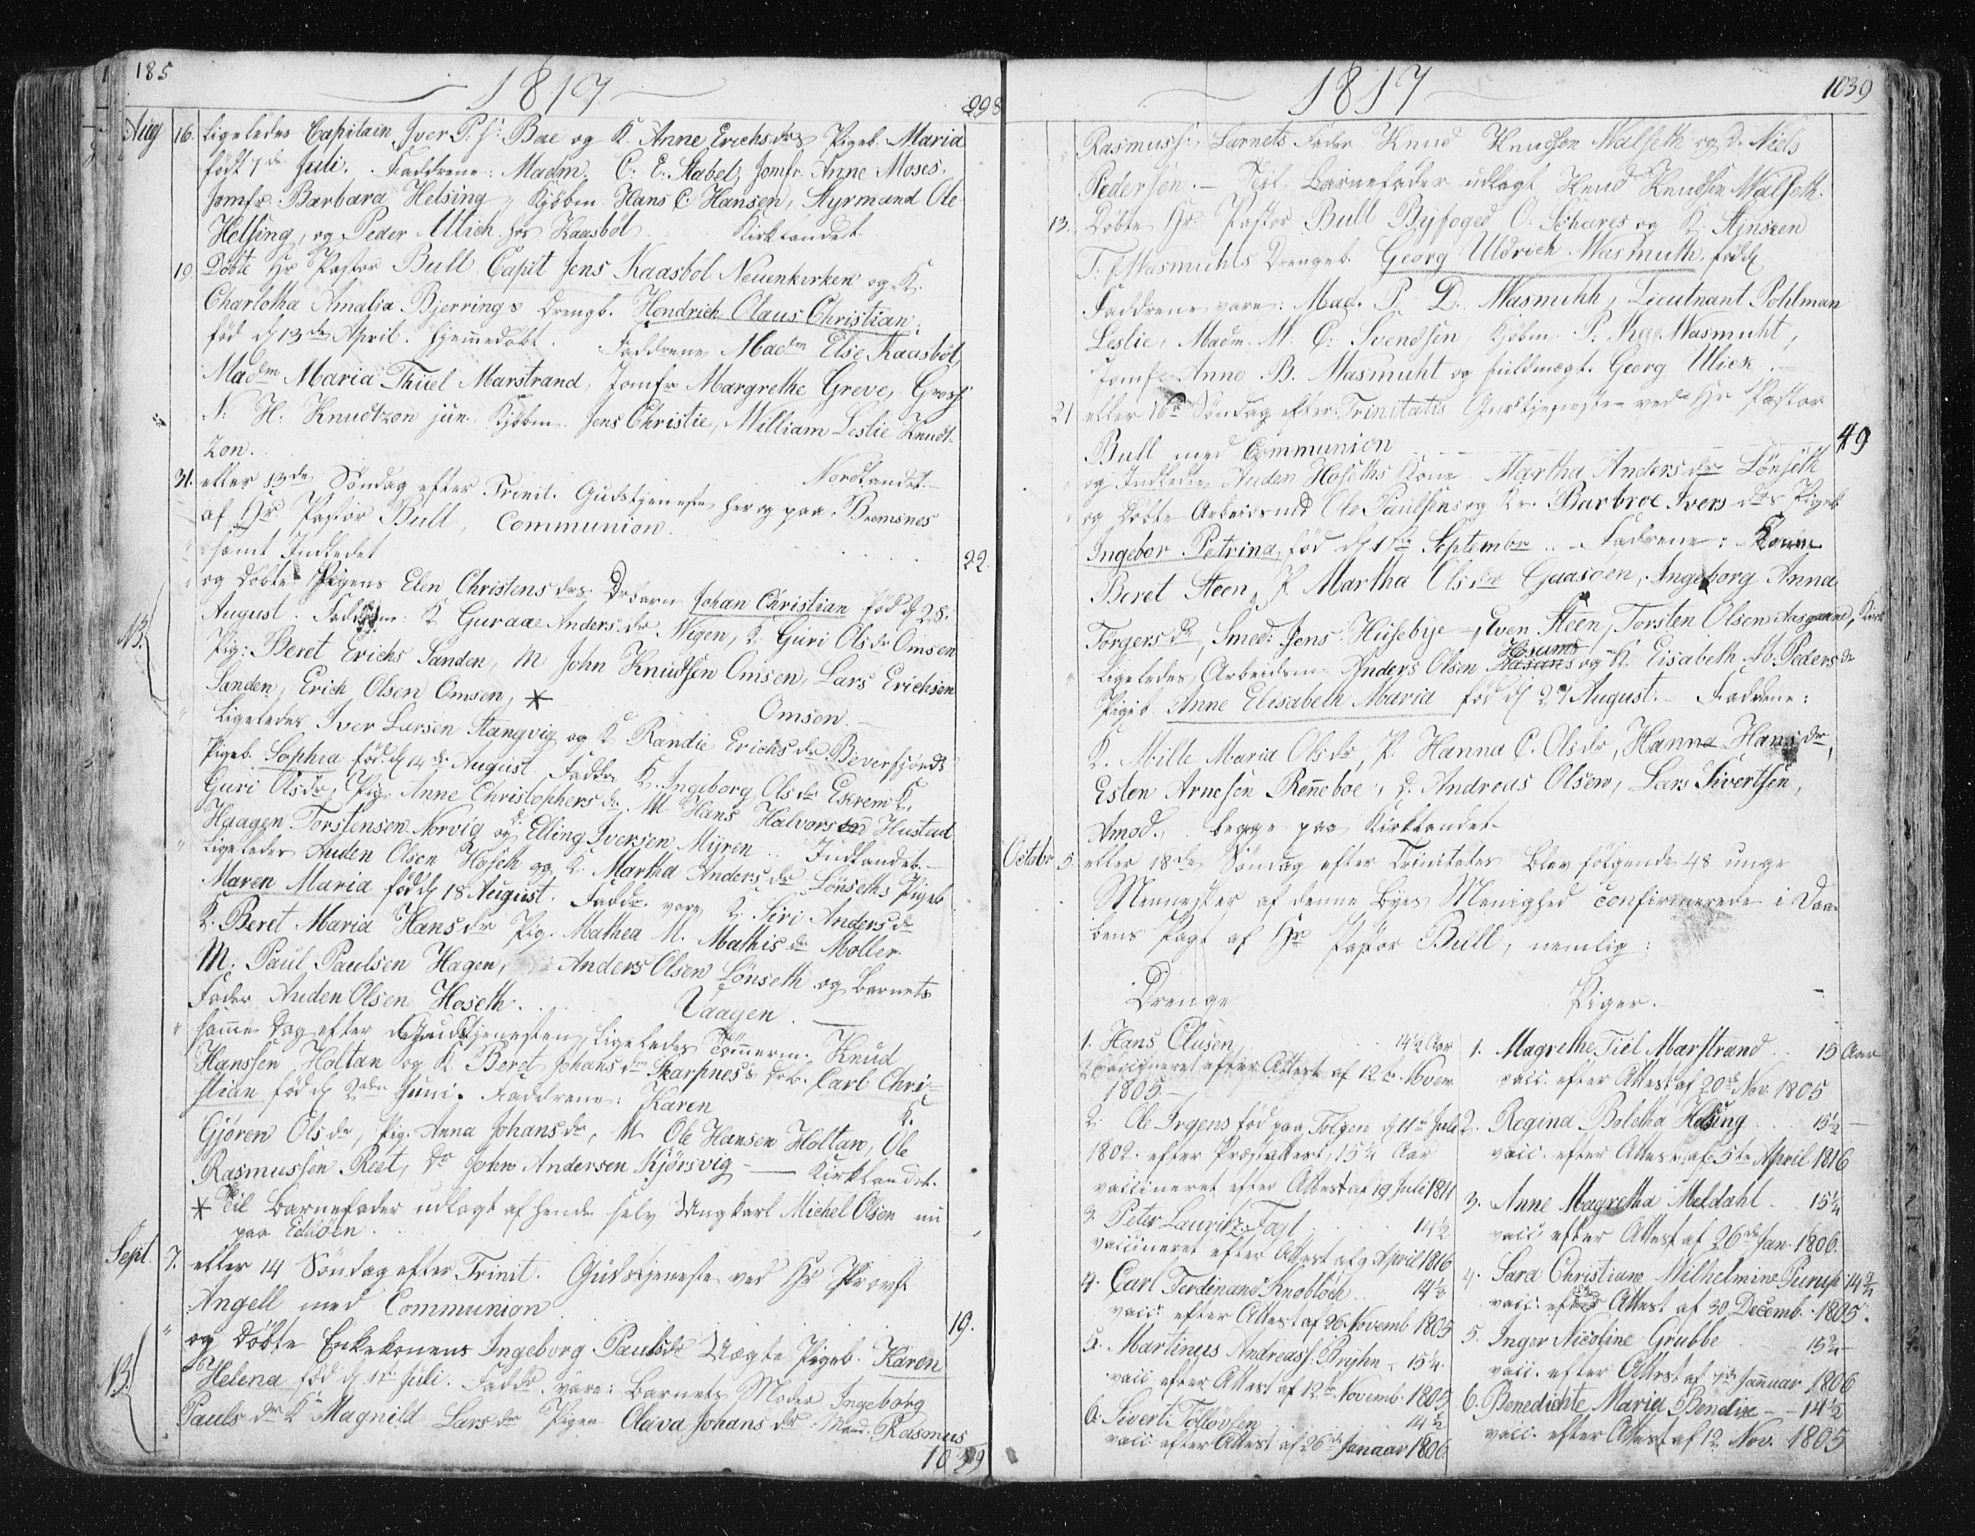 185
1817
998
Aug 16. ligeledes Capitain Iver P. S: Bae og K. Anne Erichsdr Pigeb. Maria
født 7de Juli. Faddrene: Madm. C. E. Stabel, Jomfr. Anne Moses,
Jomfr. Barbara Helsing, Kjøbm. Hans C. Hansen, Styrmand Ole
Helsing, og Peder Ulich hos Kaasbøl. Kirklandet
19. Døbte Hr Pastor Bull Capit Jens Kaasbøl Neuenkirken og K.
Charlotha Amalia Bjerrings Drengb. Hendrich Olaus Christian,
fød d 13de April. hjemedøbt. Faddrene Madm Else Kaasbøl,
Madm Maria Thiel Marstrand, Jomfr Margrethe Greve, Gross
N: H. Knudtzon jun. Kjøbm. Jens Christie, William Leslie Knudt-
zon. Nordlandet
31. eller 13de Søndag efter Trinit. Gudstjeneste her og paa Bremsnes
af Hr Pastor Bull, Communion. 22
samt Indledet
og døbte Pigens Elen Christensdrs Drbarn Johan Christian fød d 28.
August. Faddrene: K Guraae Andersdr Wigen, K. Guri Olsdr Omsen
Pig: Beret Erichs Sanden, M John Knudtsen Omsen, Lars Erichsen
Sanden, Erich Olsen Omsen, * Omsen.
ligeledes Iver Larsen Stangvig og K Randie Erichsdr Beverfjords
Pigeb. Sophia fød d 14de August. Faddr K. Ingeborg Olsdr Ekrem K.
Guri Olsdr, Pig. Anne Christophersdr M Hans Halvorsen Hustad
Haagen Torstensen Norvig og Elling Iversen Myren .. Indlandet
ligeledes Auden Olsen Hoseth og K. Martha Andersdr Lønseths Pigeb
Maren Maria fød d 18 August. Faddr. vare K. Siri Andersdr
K. Beret Maria Hansdr Pig. Mathea M. Mathisdr Møller
M. Paul Paulsen Hagen, Anders Olsen Lønseth og Barnets
Fader Auden Olsen Hoseth. Vaagen.
samme Dag efter Gudstjenesten, ligeledes Tømmerm. Knud
Hanssen Holtan og K Beret Johansdr Skarpnes's Drb. Carl Chri-
stian fød d 2den Juni. Faddrene: Karen K.
Gjøren Olsdr, Pig. Anna Johansdr, M. Ole Hansen Holtan, Ole
Rasmussen Reet, Dr John Andersen Kjørsvig — Kirklandet.
* Til Barnefader udlagt af hende selv Ungkarl Michel Olsen nu
paa Edøen.
Sept. 7. eller 14 Søndag efter Trinit. Gudstjeneste ved Hr Provst
Angell med Communion 19.
og Døbte Enkekonens Ingeborg Paulsdr Uægte Pigeb. Karen
Helena fød d 1ste Juli. Faddr. vare: Barnets Moder Ingeborg
Paulsdr K Magnild Larsdr Pigen Olava Johansdr Mand. Rasmus
1039
1817
1039
Rasmuss:, Barnets Fader Knud Knudsen Walseth og D. Niels
Pedersen. — Til Barnefader udlagt Knud Knudsen Walseth.
13. Døbte Hr Pastor Bull Byfoged O. Schares og K.
T. Wasmuhts Drengeb. Georg Uldrich Wasmuth, fød d
Faddrene vare: Mad. P. D. Wasmuhh, Lieutnant Pohlman
Leslie, Madm. M. C. Svendsen Kjøbm. P. Wasmuht,
Jomfr Anne B. Wasmuht og fuldmegt. Georg Ulick.
21 eller 16de Søndag efter Trinitatis Gudstjeneste ved Hr Pastor
Bull med Communion 49
og Indledte Auden Hoseths Kone Martha Andersdr Lønseth
og døbte Arbeidsmd Ole Paulsens og K. Barbroe Iversdrs Pigeb
Ingebor Petrina, fød d 1ste Septembr .. Fadrene: Konen
Beret Steen, P Martha Olsdr Gaasøen, Ingeborg Anna
Torgersdr, Smed: Jens Husebye, Even Steen, Torsten Olsen Aasgaard, Kirk
ligeledes Arbeidsm. Anders Olsen Hosums og K Eisabeth M. Pedersdr
Pigeb. Anne Elisabeth Maria fød d 27 August. — Fadrene:
K. Mille Maria Olsdr, P. Hanna C. Olsdr, Hanna Hansdr,
Esten Arnesen Renneboe, D. Andreas Olsen, Lars Sivertsen,
Amod. begge paa Kirklandet
Octobr 5. eller 18de Søndag efter Trinitatis blev følgende 48 unge
Mennesker af denne Byes Menighed confirmerede i Daa-
bens Pagt af Hr Pastor Bull, nemlig:
Drenge
1. Hans Clusen 14½ Aar
vaccineret efter Attest af 12te Novem.
1805.
2. Ole Irgens fød paa Tolgen d 11te Juli
1802. efter Prosteattest, 15¼ Aar
vaccineret efter Attest af 19 Juli 1811
3. Peter Lauritz Fogt 14½
vaccineret efter Attest af 9 April 1816
4. Carl Ferdinand Knobloch 14½
vacc. efter Attest af 26 Novemb 1805
5. Martinus Andreas Brijhn 15¼
vacc efter Attest af 12te Novemb. 1805
6. Sivert Tostøvsen 14½
vacc efter Attest af 26de Januar 1806.
Piger.
1. Magrethe Tiel Marstrand 15 Aar
vacc. efter Attest af 20de Nov. 1805
2. Regina Boletha Helsing 15½
vacc. efter Attest af 5te April 1816
3. Anne Magretha Meldahl 15¼
vacc efter Attest af 26de Jan. 1806.
4. Sara Christiane Wilhelmine Purup 14¾
vacc. efter Attest af 30 Decemb. 1805.
5. Inger Nicoline Grubbe 15¾
vacc. efter Attest af 7de Januar 1806
6. Benedichte Maria Bendixe 14½
vacc. efter Attest af 12 Nov. 1805